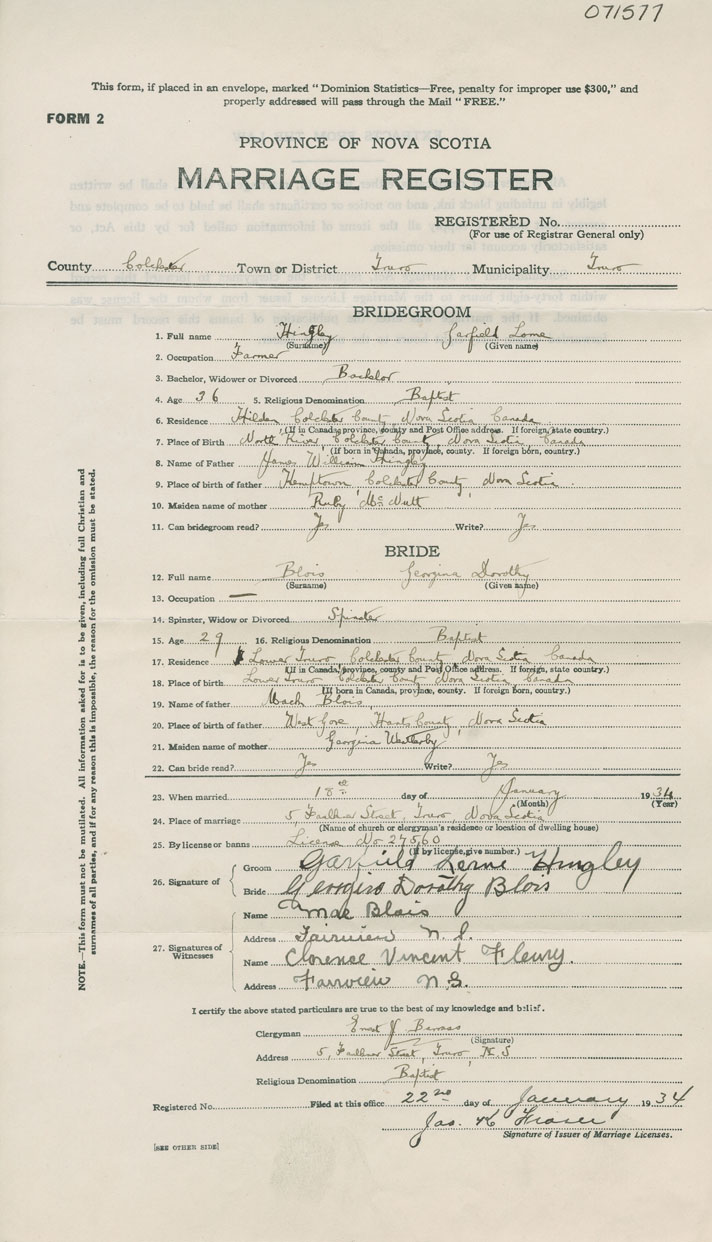 071577
This form, if placed in an envelope, marked "Dominion Statistics—Free, penalty for improper use $300," and
properly addressed will pass through the Mail "FREE."
FORM 2
PROVINCE OF NOVA SCOTIA
MARRIAGE REGISTER
REGISTERED No.
(For use of Registrar General only)
County Colchester Town or District Truro Municipality Truro
BRIDEGROOM
1. Full name Hingley Garfield Lorne
(Surname) (Given name)
2. Occupation Farmer
3. Bachelor, Widower or Divorced Bachelor
4. Age 36 5. Religious Denomination Baptist
6. Residence Hilden Colchester County Nova Scotia Canada
(If in Canada, province, county and Post Office address. If foreign, state country.)
7. Place of Birth North River Colchester County, Nova Scotia Canada
(If born in Canada, province, county. If foreign born, country.)
8. Name of Father James William Hingley
9. Place of birth of father Kemptown Colchester County Nova Scotia
10. Maiden name of mother Ruby McNutt
11. Can bridegroom read? Yes Write? Yes
BRIDE
12. Full name Blois Georgina Dorothy
(Surname) (Given name)
13. Occupation —
14. Spinster, Widow or Divorced Spinster
15. Age 29 16. Religious Denomination Baptist
17. Residence Lower Truro Colchester County Nova Scotia Canada
(If in Canada, province, county and Post Office address. If foreign, state country.)
18. Place of birth Lower Truro Colchester County Nova Scotia, Canada
(If born in Canada, province, county. If foreign born, country.)
19. Name of father Mack Blois
20. Place of birth of father West Gore, Hants County, Nova Scotia
21. Maiden name of mother Georgina Westerby
22. Can bride read? Yes Write? Yes
23. When married 18th day of January 1934
(Month) (Year)
24. Place of marriage 5, Faulkner Street, Truro, Nova Scotia
(Name of church or clergyman's residence or location of dwelling house)
25. By license or banns License No 27560
(If by license, give number.)
26. Signature of
Groom Garfield Lorne Hingley
Bride Georgina Dorothy Blois
27. Signatures of Witnesses
Name Mae Blois
Address Fairview N.S.
Name Clarense Vincent Fleury.
Address Fairview N.S.
I certify the above stated particulars are true to the best of my knowledge and belief.
Clergyman Ernest J Barrass
(Signature)
Address 5, Faulkner Street, Truro, N.S
Religious Denomination Baptist
Registered No. Filed at this office 22nd day of January 1934
Jas. K Fraser
Signature of Issuer of Marriage Licenses.
[SEE OTHER SIDE]
NOTE.—This form must not be mutilated. All information asked for is to be given, including full Christian and
surnames of all parties, and if for any reason this is impossible, the reason for the omission must be stated.